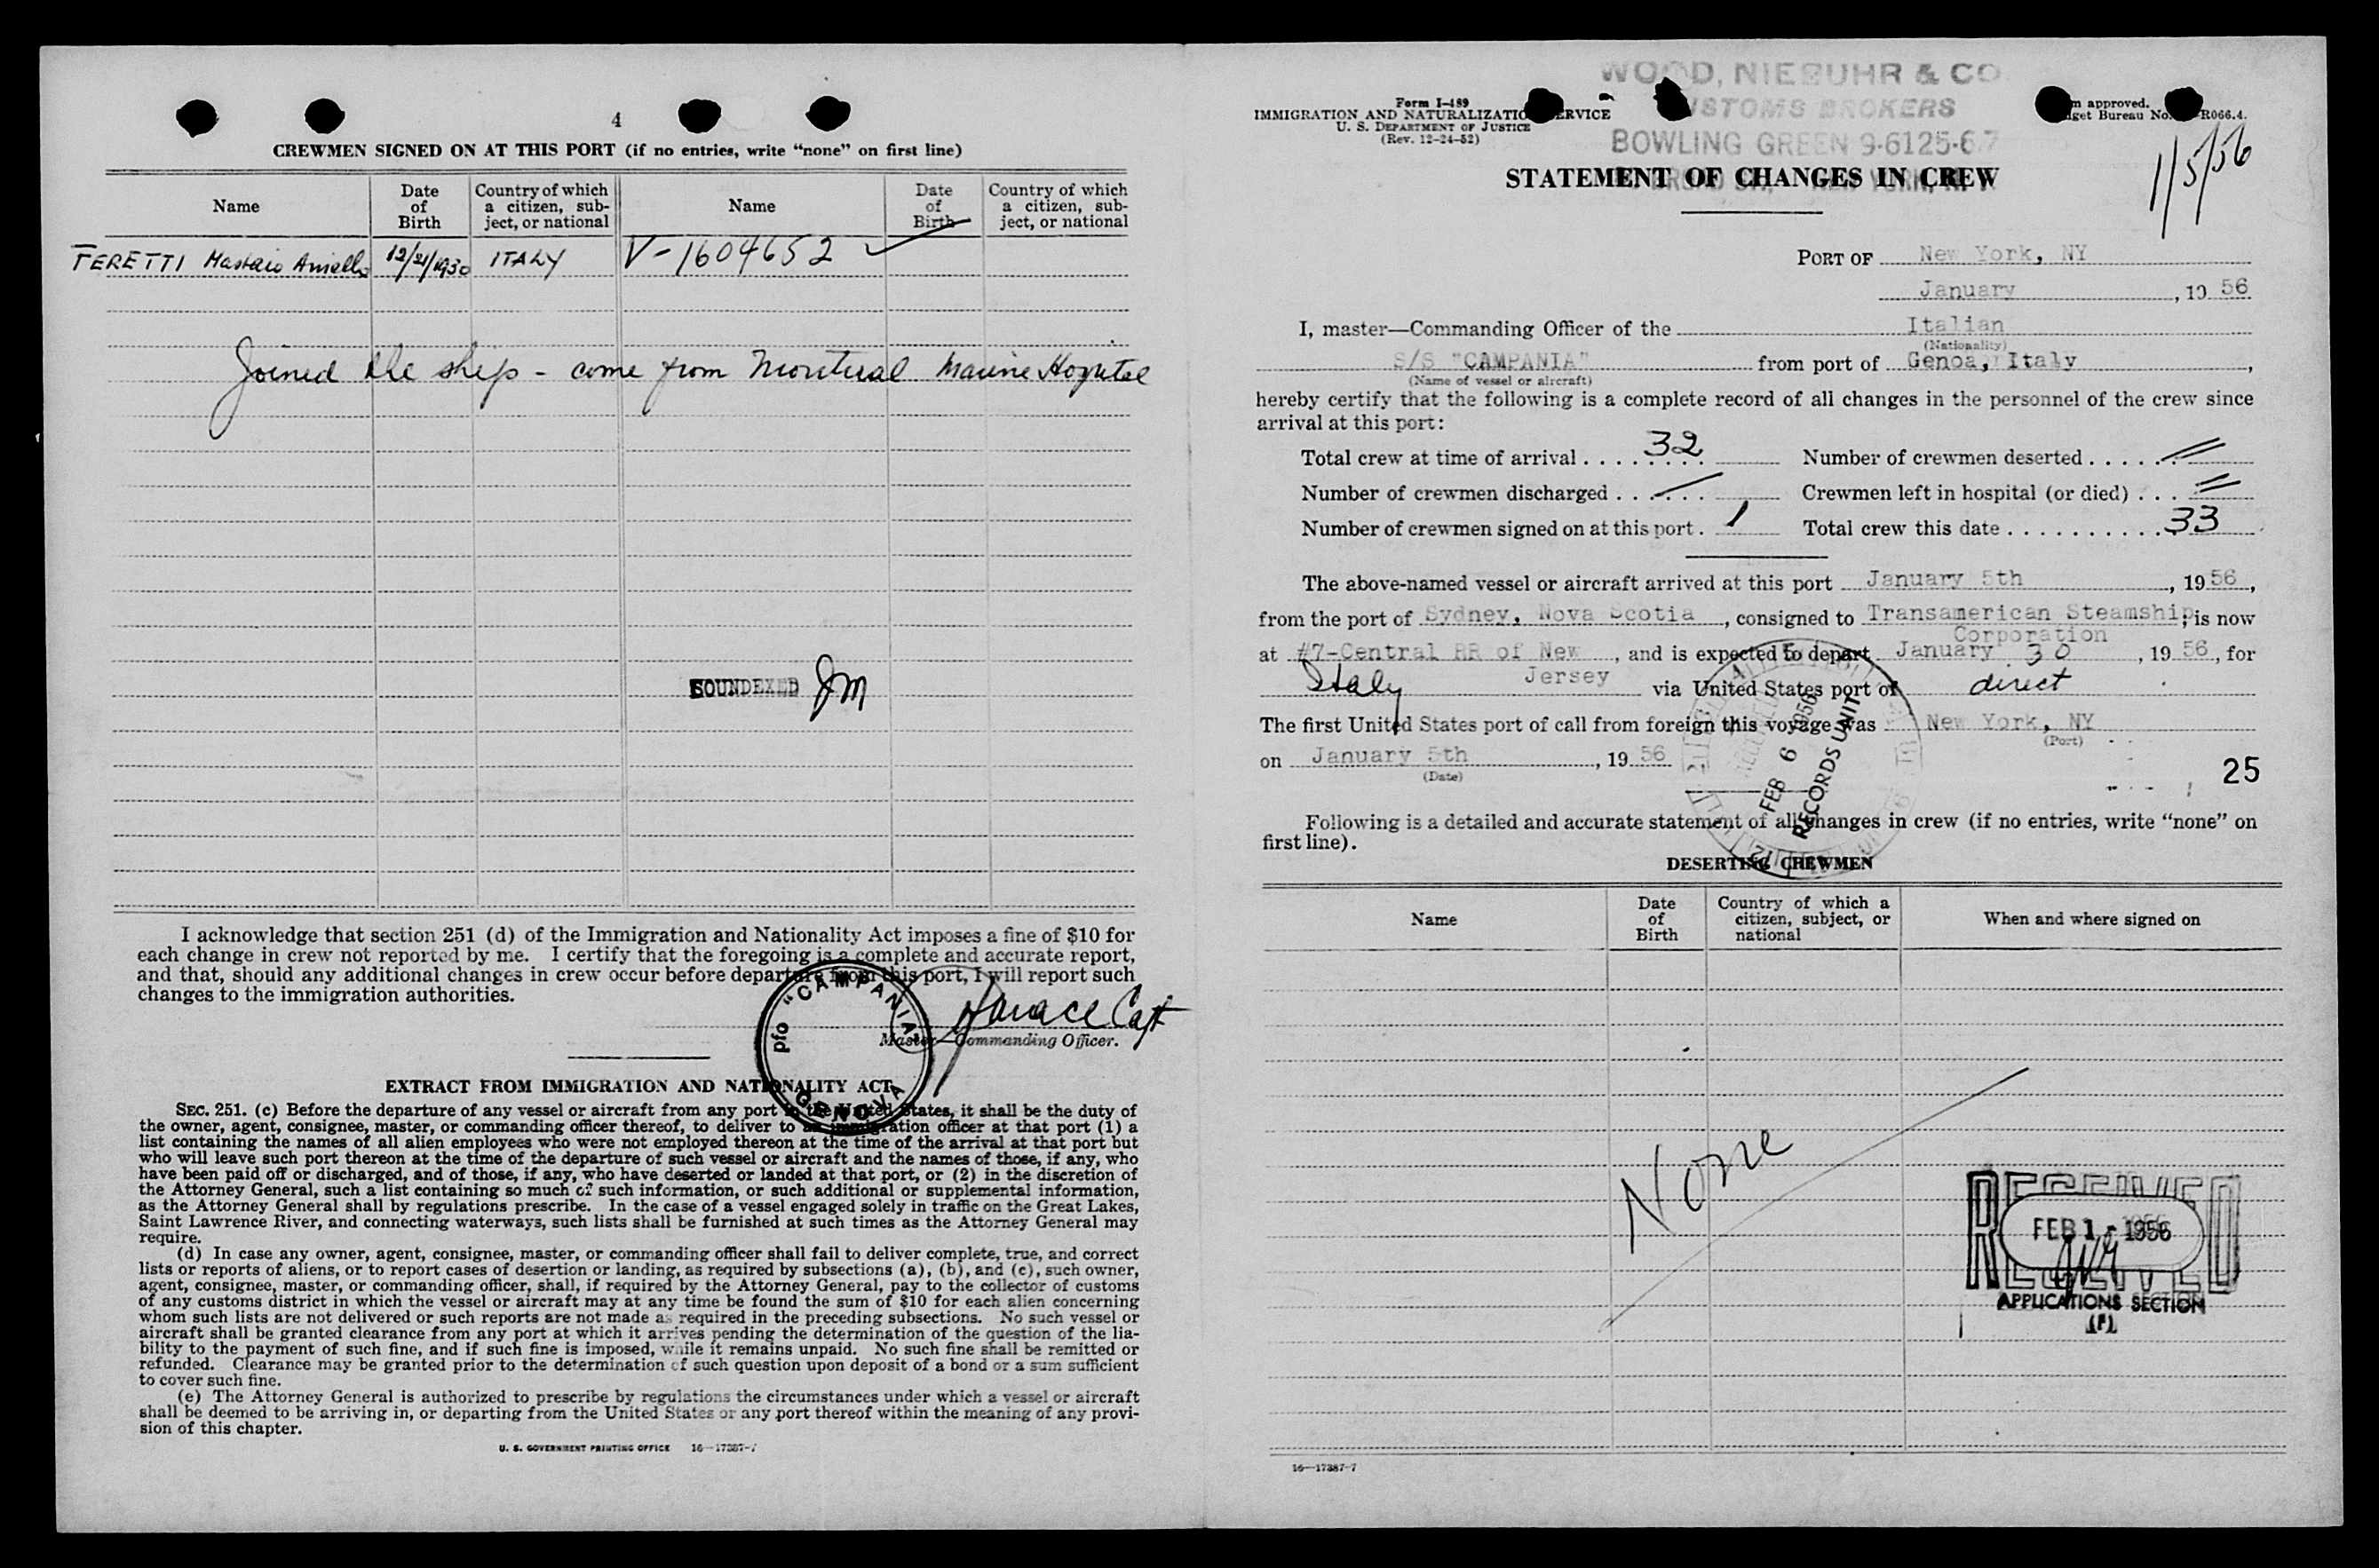 4
CREWMEN SIGNED ON AT THIS PORT (if no entries, write “none” on first line)
Name
Date of Birth
Country of which a citizen, subject, or national
Name
Date of Birth
Country of which a citizen, subject, or national
FERETTI Aniello 12/21/1930 ITALY V-1604652
Joined the ship - come from Montreal Marine Hospital
SOUNDEXED JM
I acknowledge that section 251 (d) of the Immigration and Nationality Act imposes a fine of $10 for
each change in crew not reported by me. I certify that the foregoing is a complete and accurate report,
and that, should any additional changes in crew occur before departure from this port, I will report such
changes to the immigration authorities.
pfo "CAMPANIA" GENOVA
Capt
Master—Commanding Officer.
EXTRACT FROM IMMIGRATION AND NATIONALITY ACT
SEC. 251. (c) Before the departure of any vessel or aircraft from any port in the United States, it shall be the duty of
the owner, agent, consignee, master, or commanding officer thereof, to deliver to an immigration officer at that port (1) a
list containing the names of all alien employees who were not employed thereon at the time of the arrival at that port but
who will leave such port thereon at the time of the departure of such vessel or aircraft and the names of those, if any, who
have been paid off or discharged, and of those, if any, who have deserted or landed at that port, or (2) in the discretion of
the Attorney General, such a list containing so much of such information, or such additional or supplemental information,
as the Attorney General shall by regulations prescribe. In the case of a vessel engaged solely in traffic on the Great Lakes,
Saint Lawrence River, and connecting waterways, such lists shall be furnished at such times as the Attorney General may
require.
(d) In case any owner, agent, consignee, master, or commanding officer shall fail to deliver complete, true, and correct
lists or reports of aliens, or to report cases of desertion or landing, as required by subsections (a), (b), and (c), such owner,
agent, consignee, master, or commanding officer, shall, if required by the Attorney General, pay to the collector of customs
of any customs district in which the vessel or aircraft may at any time be found the sum of $10 for each alien concerning
whom such lists are not delivered or such reports are not made as required in the preceding subsections. No such vessel or
aircraft shall be granted clearance from any port at which it arrives pending the determination of the question of the lia-
bility to the payment of such fine, and if such fine is imposed, while it remains unpaid. No such fine shall be remitted or
refunded. Clearance may be granted prior to the determination of such question upon deposit of a bond or a sum sufficient
to cover such fine.
(e) The Attorney General is authorized to prescribe by regulations the circumstances under which a vessel or aircraft
shall be deemed to be arriving in, or departing from the United States or any port thereof within the meaning of any provi-
sion of this chapter.
U. S. GOVERNMENT PRINTING OFFICE 16—17387-7
WOOD, NIEBUHR & CO
CUSTOMS BROKERS
BOWLING GREEN 9-6125-6-7
Form I-489
IMMIGRATION AND NATURALIZATION SERVICE
U. S. DEPARTMENT OF JUSTICE
(Rev. 12-24-52)
approved.
Budget Bureau No. R066.4.
1/5/56
STATEMENT OF CHANGES IN CREW
PORT OF New York, NY
January, 19 56
I, master—Commanding Officer of the Italian
(Nationality)
S/S "CAMPANIA" from port of Genoa, Italy,
(Name of vessel or aircraft)
hereby certify that the following is a complete record of all changes in the personnel of the crew since
arrival at this port:
Total crew at time of arrival . . . . . . . . 32 Number of crewmen deserted . . . . . .
Number of crewmen discharged . . . . . . Crewmen left in hospital (or died) . . .
Number of crewmen signed on at this port . 1 Total crew this date . . . . . . . . . . . 33
The above-named vessel or aircraft arrived at this port January 5th, 19 56,
from the port of Sydney, Nova Scotia, consigned to Transamerican Steamship Corporation; is now
at #7-Central RR of New Jersey, and is expected to depart January 30, 19 56, for
Italy via United States port of direct
The first United States port of call from foreign this voyage was New York, NY
(Port)
on January 5th, 19 56
(Date)
FEB 6 1956
RECORDS UNIT
25
Following is a detailed and accurate statement of all changes in crew (if no entries, write “none” on
first line).
DESERTING CREWMEN
Name
Date of Birth
Country of which a citizen, subject, or national
When and where signed on
None
RECEIVED
FEB 1 - 1956
APPLICATIONS SECTION
16—17387-7